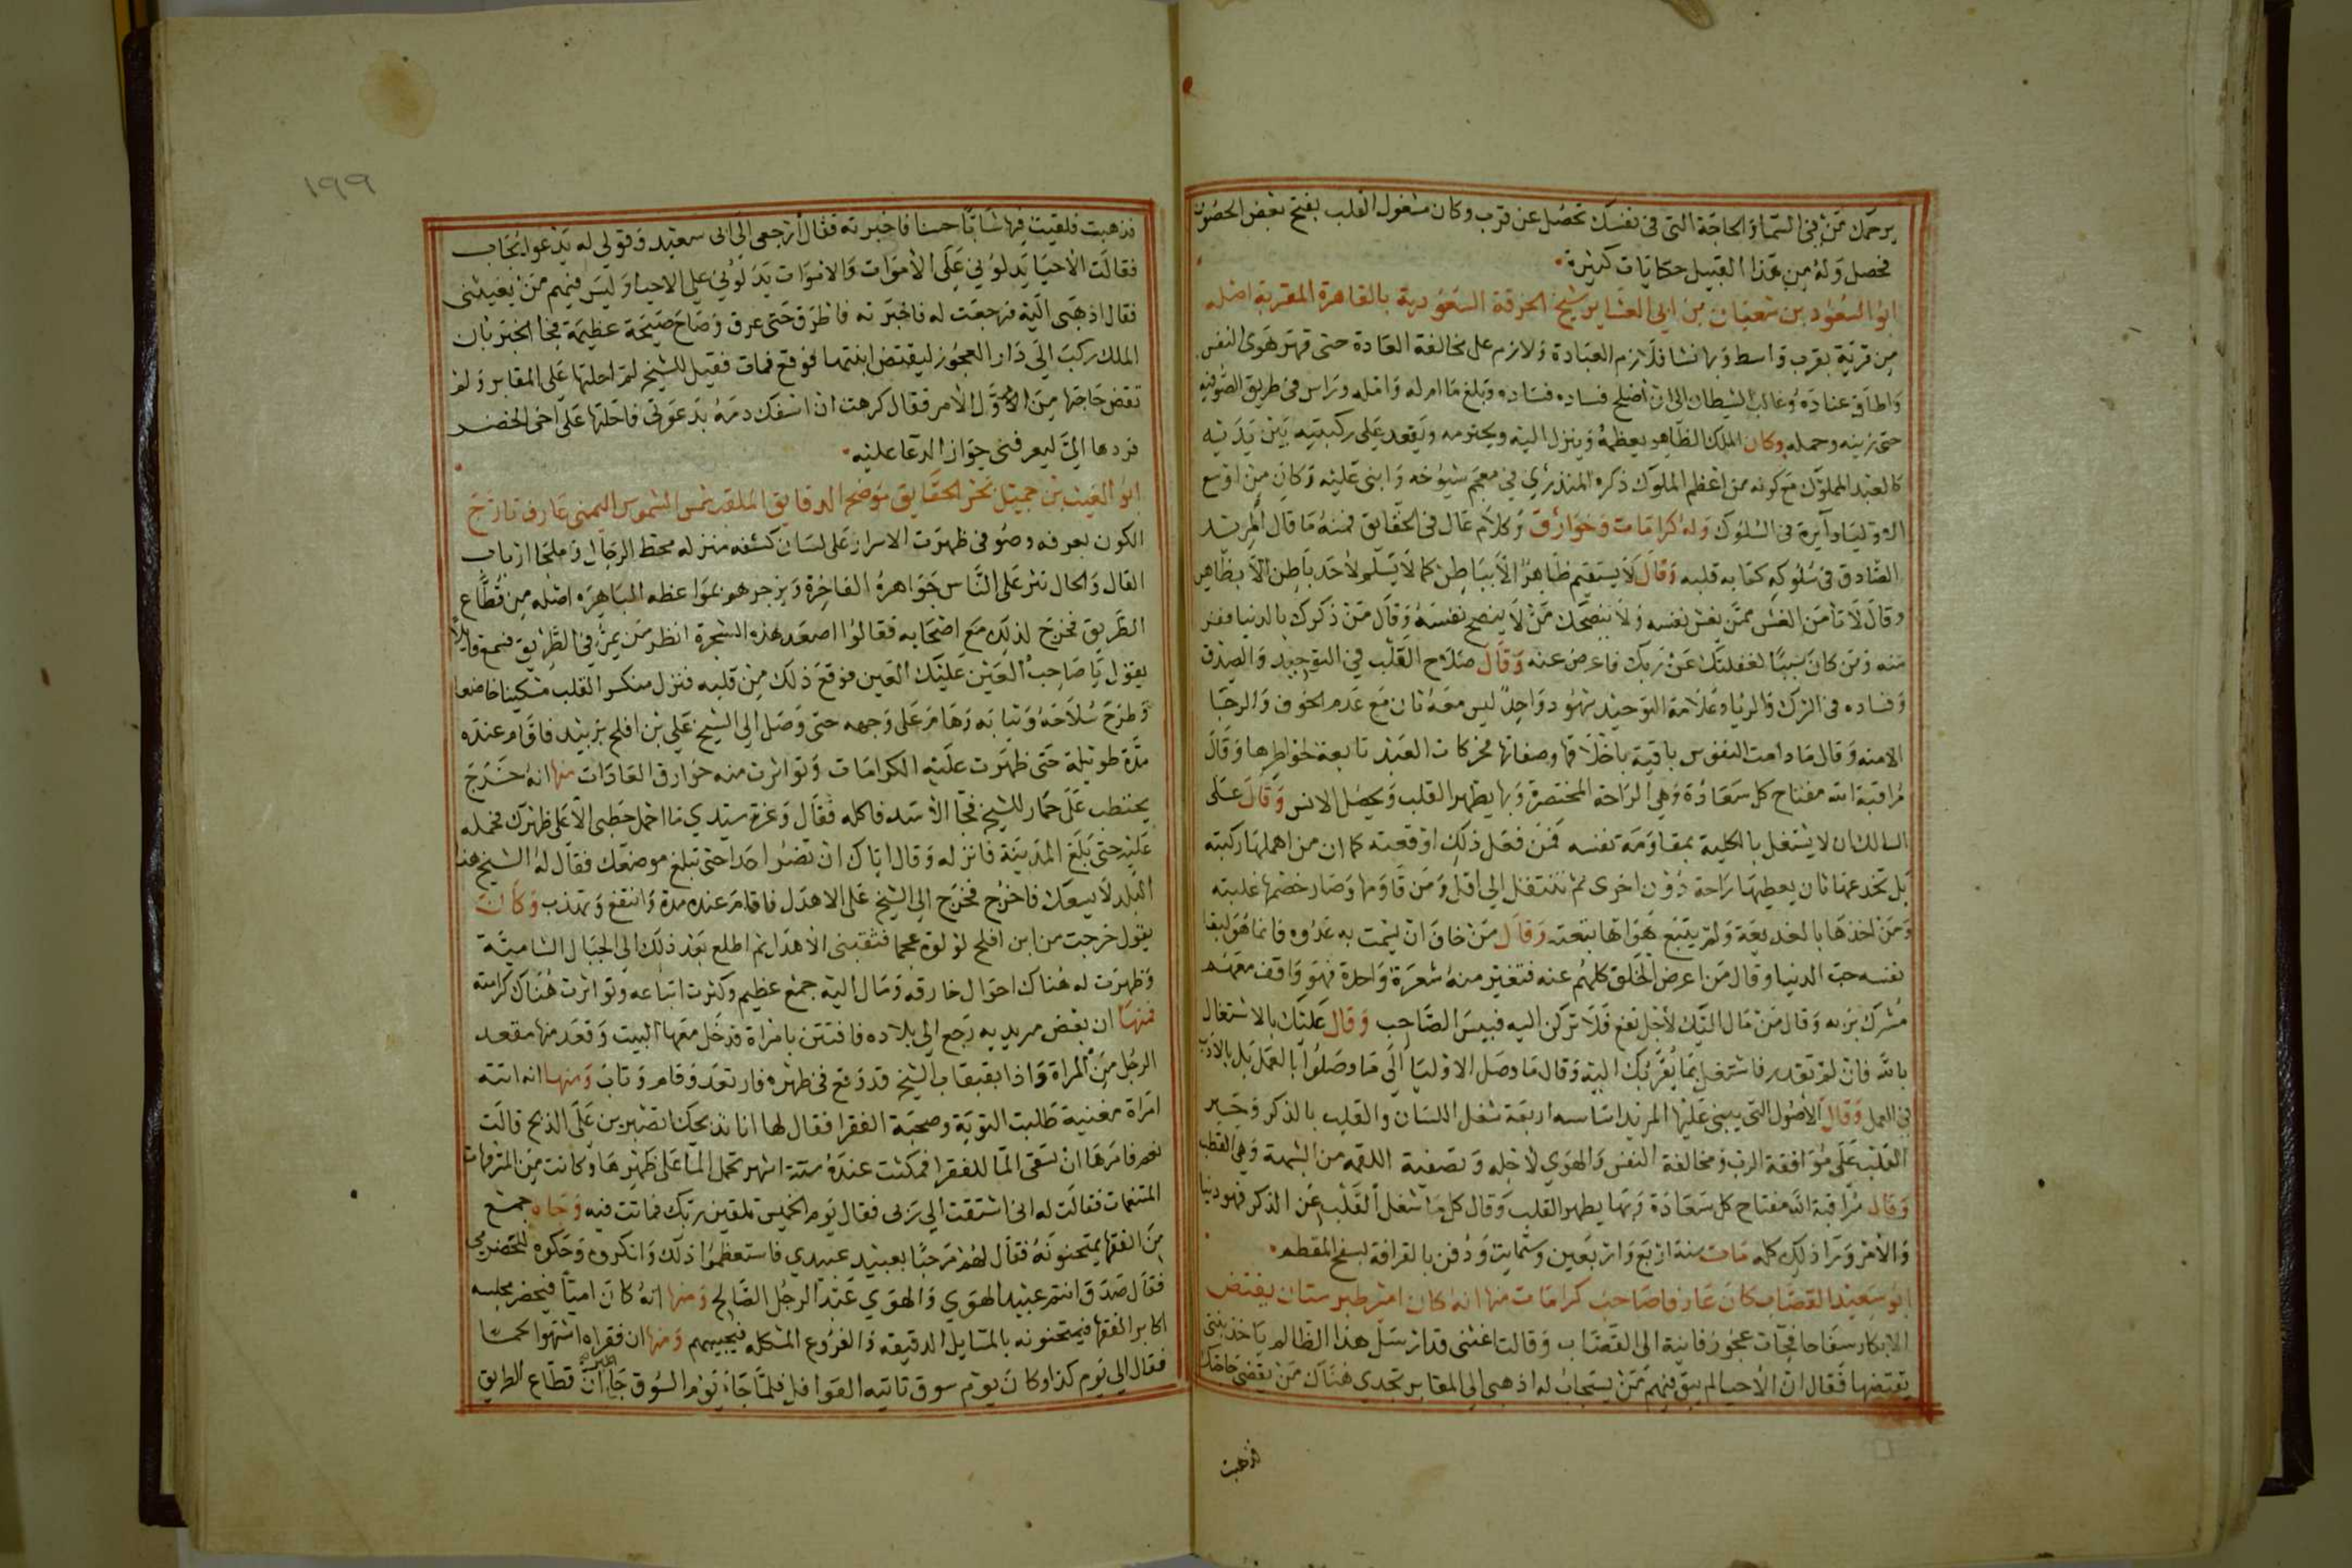 يرحمك من في السماء والحاجة التي في نفسك تحصل عن قرب وكان مشغول القلب بفتح بعض الحصون
فحصل وله من هذا القبيل حكايات كثيرة
ابو السعود بن شعبان بن ابي العشاير شيخ الخرقة السعودية بالقاهرة المقرية اصله
من قرية بقرب واسط وبها نشا فلازم العبادة ولازم على مخالفة العادة حتى قهر هوى النفس
واطاق عناده وغالب الشيطان الى ان اصلح فساده وبلغ ما امله وراس في طريق الصوفيه
حتى زينه وحمله وكان الملك الظاهر يعظمه وينزل اليه ويحترمه ويقعد على ركبتيه بين يديه
كالعبد المملوك مع كونه من اعظم الملوك ذكره المنذري في معجم شيوخه واثنى عليه وكان من اوسع
الاوليا دآيرة في السلوك وله كرامات وخوارق وكلام عال في الحقايق فمنه ما قال المريد
الصادق في سلوكه كتابه قلبه وقال لا يستقيم ظاهر الا بباطن كما لا يسلم لاحد باطن الا بظاهر
وقال لا تامن الغش ممن يغش نفسه ولا ينصحك من لا ينصح نفسه وقال من ذكرك بالدنيا ففر
منه ومن كان سببا لغفلتك عن ربك فاعرض عنه وقال صلاح القلب في التوحيد والصدق
وفساده في الشرك والريا وعلامة التوحيد شهود واحد ليس معه ثان مع عدم الخوف والرجا
الامنه وقال ما دامت النفوس باقية باخلاقها وصفاتها فحركات العبد تابعة لخواطرها وقال
مراقبة الله مفتاح كل سعادة وهي الراحة المختصرة وبها يطهر القلب ويحصل الانس وقال على
السالك ان لا يشتغل بالكلية بمقاومة نفسه فمن فعل ذلك اوقعته كما ان من اهملها ركبته
بل يخدعها بان يعطيها راحة دون اخرى ثم ينتقل الى اقل ومن قاومها وصار خصمها غلبته
ومن اخذها بالخديعة ولم يتبع هواها تبعته وقال من خاف ان يشمت به عدوه فانما هو لبقا
نفسه حب الدنيا وقال من اعرض الخلق كلهم عنه فتغير منه شعرة واحدة فهو واقف معهم
مشرك بربه وقال من مال اليك لاجل نفع فلا تركن اليه فبيس الصاحب وقال عليك بالاشتغال
بالله فان لم تقدر فاشتغل بما يقربك اليه وقال ما وصل الاوليا الى ما وصلوا بالعمل بل بالادب
في العمل وقال الاصول التي يبني عليها المريد اساسه اربعة شغل اللسان والقلب بالذكر وجبر
القلب على موافقة الرب ومخالفة النفس والهوى لاجله وتصفية اللقمه من الشبهة وهي القطب
وقال مراقبة الله مفتاح كل سعادة وبها يطهر القلب وقال كل ما شغل القلب عن الذكر فهو دنيا
والامر وراذلك كله مات سنة اربع واربعين وستمايت ودفن بالقرافة بسفح المقطم
ابو سعيد القصاب كان عارفا صاحب كرامات منها انه كان امير طبرستان يفتض
الابكار سفاحا فجات عجوز فانية الى القصاب وقالت اغثني قد ارسل هذا الظالم ياخذ بنتي
يفتضها فقال ان الاحيا لم يبق فيهم من يستجاب له اذهبي الى المقابر تجدي هناك من يقضي حاجتك
فذهبت
١٩٩
فذهبت فلقيت فيها شابا حسنا فاخبرته فقال ارجعي الى ابي سعيد وقولي له يدعو يجاب
فقالت الاحيا يدلوني على الاموات والاموات يدلوني على الاحيا وليس فيهم من يغيثني
فقال اذهبي اليه فرجعت له فاخبرته فاطرق حتى عرق وصاح صيحة عظيمة فجا الخبر بان
الملك ركب الى دار العجوز ليفتض ابنتها فوقع فمات فقيل للشيخ لم احلتها على المقابر ولم
تقض حاجتها من الاول الامر فقال كرهت ان اسفك دمه بدعوتي فاحلتها على اخي الخضر
فردها الي ليعرفني جواز الدعا عليه
ابو الغيث بن جميل بحر الحقايق موضح الدقايق الملقب شمس الشموس اليمني عارف تارج
الكون بعرفه وصوفي ظهرت الاسرار على لسان كشفه منزله محط الرجال وملجا ارباب
القال والحال نثر على الناس جواهره الفاخرة ويزجرهم بمواعظه الباهره اصله من قطاع
الطريق فخرج لذلك مع اصحابه فقالوا اصعد هذه الشجرة انظر من يمر في الطريق فسمع قايلا
يقول يا صاحب العين عليك العين فوقع ذلك من قلبه فنزل منكسر القلب مسكينا خاضعا
وطرح سلاحه وثيابه وهام على وجهه حتى وصل الى الشيخ علي بن افلح بزبيد فاقام عنده
مدة طويلة حتى ظهرت عليه الكرامات وتواترت منه خوارق العادات منها انه خرج
يحتطب على حمار للشيخ فجا الاسد فاكله فقال وعزة سيدي ما احمل حطبي الا على ظهرك فحمله
عليه حتى بلغ المدينة فانزله وقال اياك ان تضر احدا حتى تبلغ موضعك فقال له الشيخ هذا
البلد لا يسعك فاخرج فخرج الى الشيخ على الاهدل فاقام عنده مدة وانتفع وتهذب وكان
يقول خرجت من ابن افلح لولوة عجما فثقبني الاهدل ثم اطلع بعد ذلك الى الجبال الشامية
وظهرت له هناك احوال خارقه ومال اليه جمع عظيم وكثرت اتباعه وتواترت هناك كرامته
فمنها ان بعض مريديه رجع الى بلاده فافتتن بامراة فدخل معها البيت وقعد منها مقعد
الرجل من المراة واذا بقبقاب الشيخ قد وقع في ظهره فارتعد وقام وتاب ومنها انه اتته
امراة مغنية طلبت التوبة وصحبة الفقرا فقال لها انا نذبحك اتصبرين على الذبح قالت
نعم فامرها ان تسقي الما للفقرا فمكثت عنده ستة اشهر تحمل الما على ظهرها وكانت من المترفهات
المتنعمات فقالت له اني اشتقت الى ربي فقال يوم الخميس تلقين ربك فماتت فيه وجاه جمع
من الفقها يمتحنونه فقال لهم مرحبا بعبيد عبدي فاستعظموا ذلك وانكروه وحكوه للحضرمي
فقال صدق انتم عبيد الهوى والهوى عبد الرجل الصالح ومنها انه كان اميا فيحضر مجلسه
اكابر الفقها فيمتحنونه بالمسايل الدقيقه والفروع المشكله فيجيبهم ومنها ان فقراه اشتهوا لحما
فقال الى يوم كذا وكان يوم سوق تاتيه القوافل فلما جاء يوم السوق جا الخبر ان قطاع الطريق